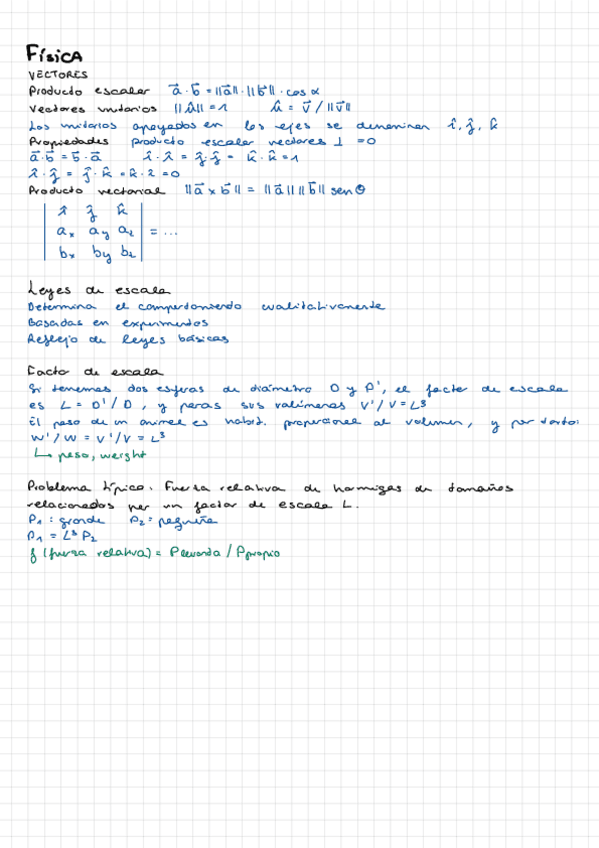 Física
VECTORES
Producto escalar a⃗ · b⃗ = ||a⃗|| · ||b⃗|| · cos α
Vectores unitarios ||û|| = 1 û = v⃗ / ||v⃗||
Los unitarios apoyados en los ejes se denominan î, ĵ, k̂
Propiedades producto escalar vectores ⊥ = 0
a⃗ · b⃗ = b⃗ · a⃗ î · î = ĵ · ĵ = k̂ · k̂ = 1
î · ĵ = ĵ · k̂ = k̂ · î = 0
Producto vectorial ||a⃗ x b⃗|| = ||a⃗|| ||b⃗|| sen θ
| î ĵ k̂ |
| ax ay az | = ...
| bx by bz |
Leyes de escala
Determina el comportamiento cualitativamente
Basadas en experimentos
Reflejo de leyes básicas
Facto de escala
Si tenemos dos esferas de diámetro D y D', el factor de escala
es L = D' / D, y paras sus volúmenes V' / V = L³
El peso de un animal es habit. proporcional al volumen, y por tanto:
W' / W = V' / V = L³
↳ peso, weight
Problema típico. Fuerza relativa de hormigas de tamaños
relacionados por un factor de escala L.
P₁ : grande P₂ : pequeña
P₁ = L³ P₂
f (fuerza relativa) = Plevanta / Ppropio